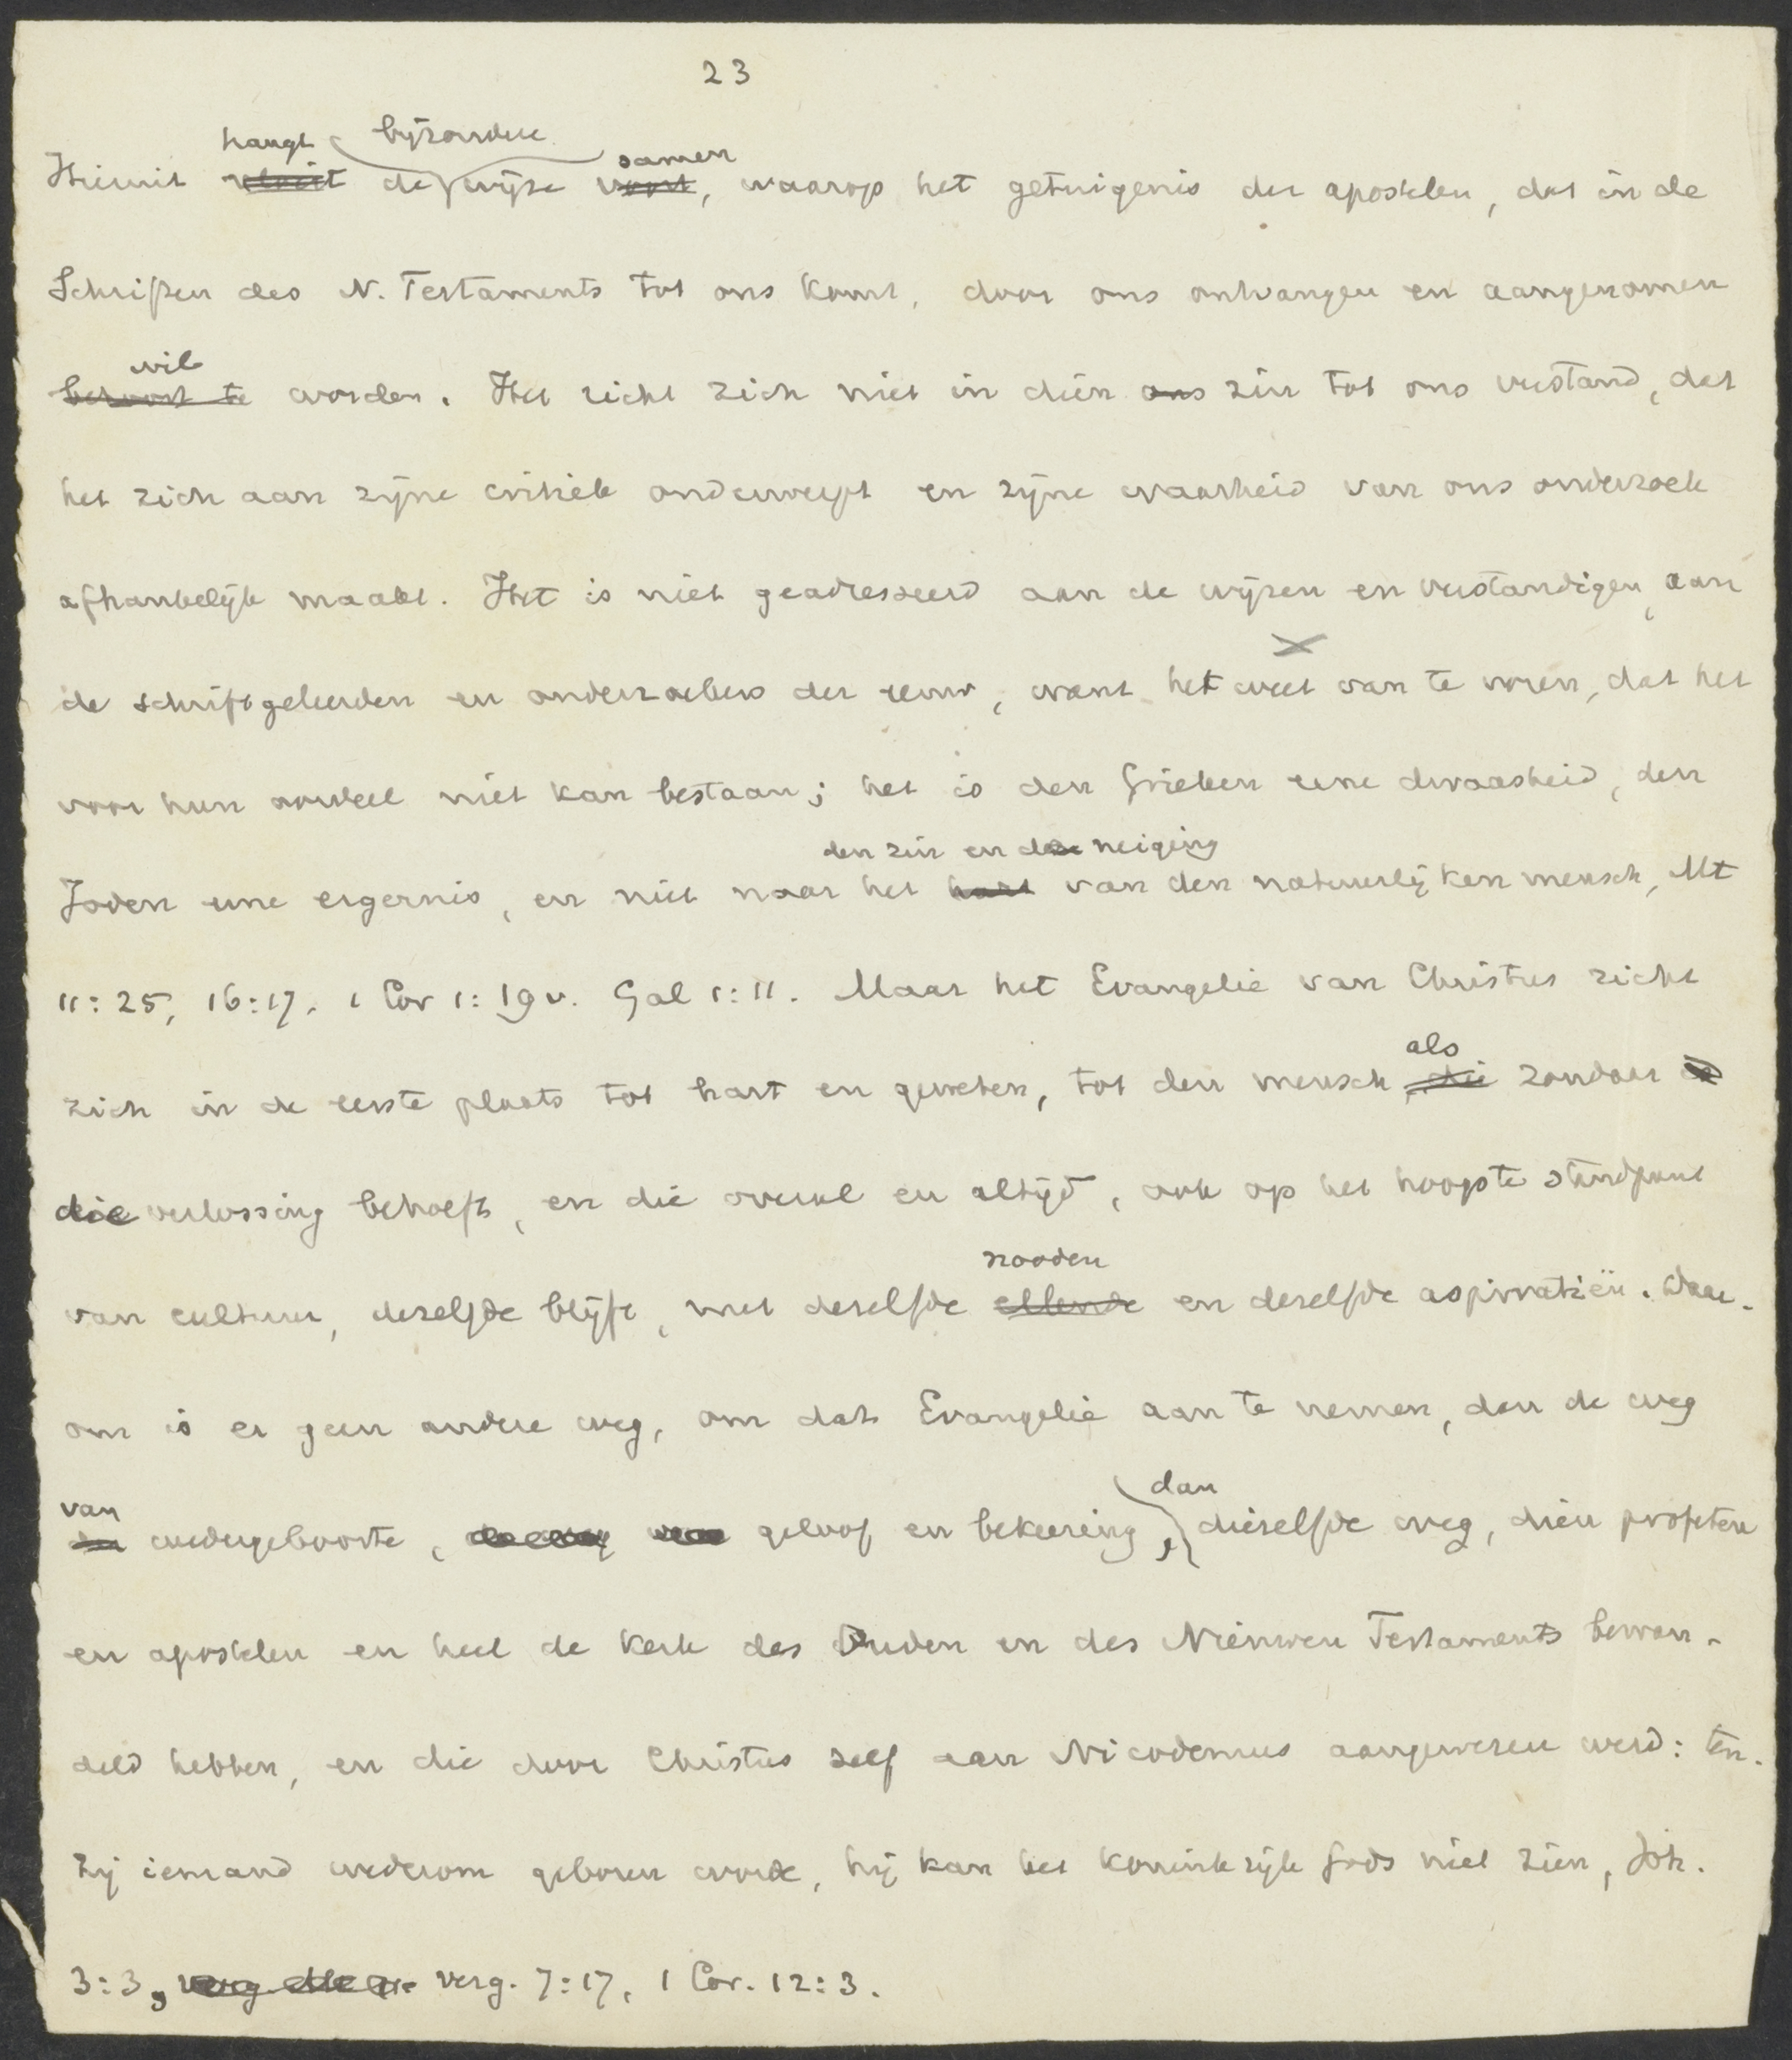 23
hangt bijzondere samen
Hiermit vloeit de wijze voort, waarop het getuigenis der apostelen, dat in de
Schriften des N. Testaments tot ons komt, door ons ontvangen en aangenomen
wil
behoort te worden. Het richt zich niet in dien ons zin tot ons verstand, dat
het zich aan zijne critiek onderwerpt en zijne waarheid van ons onderzoek
afhankelijk maakt. Het is niet geadresseerd aan de wijzen en verstandigen, aan
de schriftgeleerden en onderzoekers der eeuw, want het weet van te voren, dat het
voor hun oordeel niet kan bestaan; het is den Grieken eene dwaasheid, den
den zin en de neiging
Joden eene ergernis, en niet naar het hart van den natuurlijken mensch, Mt
11:25, 16:17, 1 Cor 1:19v. Gal 1:11. Maar het Evangelie van Christus richt
als
zich in de eerste plaats tot hart en geweten, tot den mensch, die zondaar
die verlossing behoeft, en die overal en altijd, ook op het hoogste standpunt
nooden
van cultuur, dezelfde blijft, met dezelfde ellende en dezelfde aspiratiën. Daar-
om is er geen andere weg, om dat Evangelie aan te nemen, dan de weg
van dan
der wedergeboorte, de weg van geloof en bekeering, diezelfde weg, dien profeten
en apostelen en heel de kerk des Ouden en des Nieuwen Testaments bewan-
deld hebben, en die door Christus zelf aan Nicodemus aangewezen werd: ten-
zij iemand wederom geboren worde, hij kan het koninkrijk Gods niet zien, Joh.
3:3, verg. 7:17, 1 Cor. 12:3.